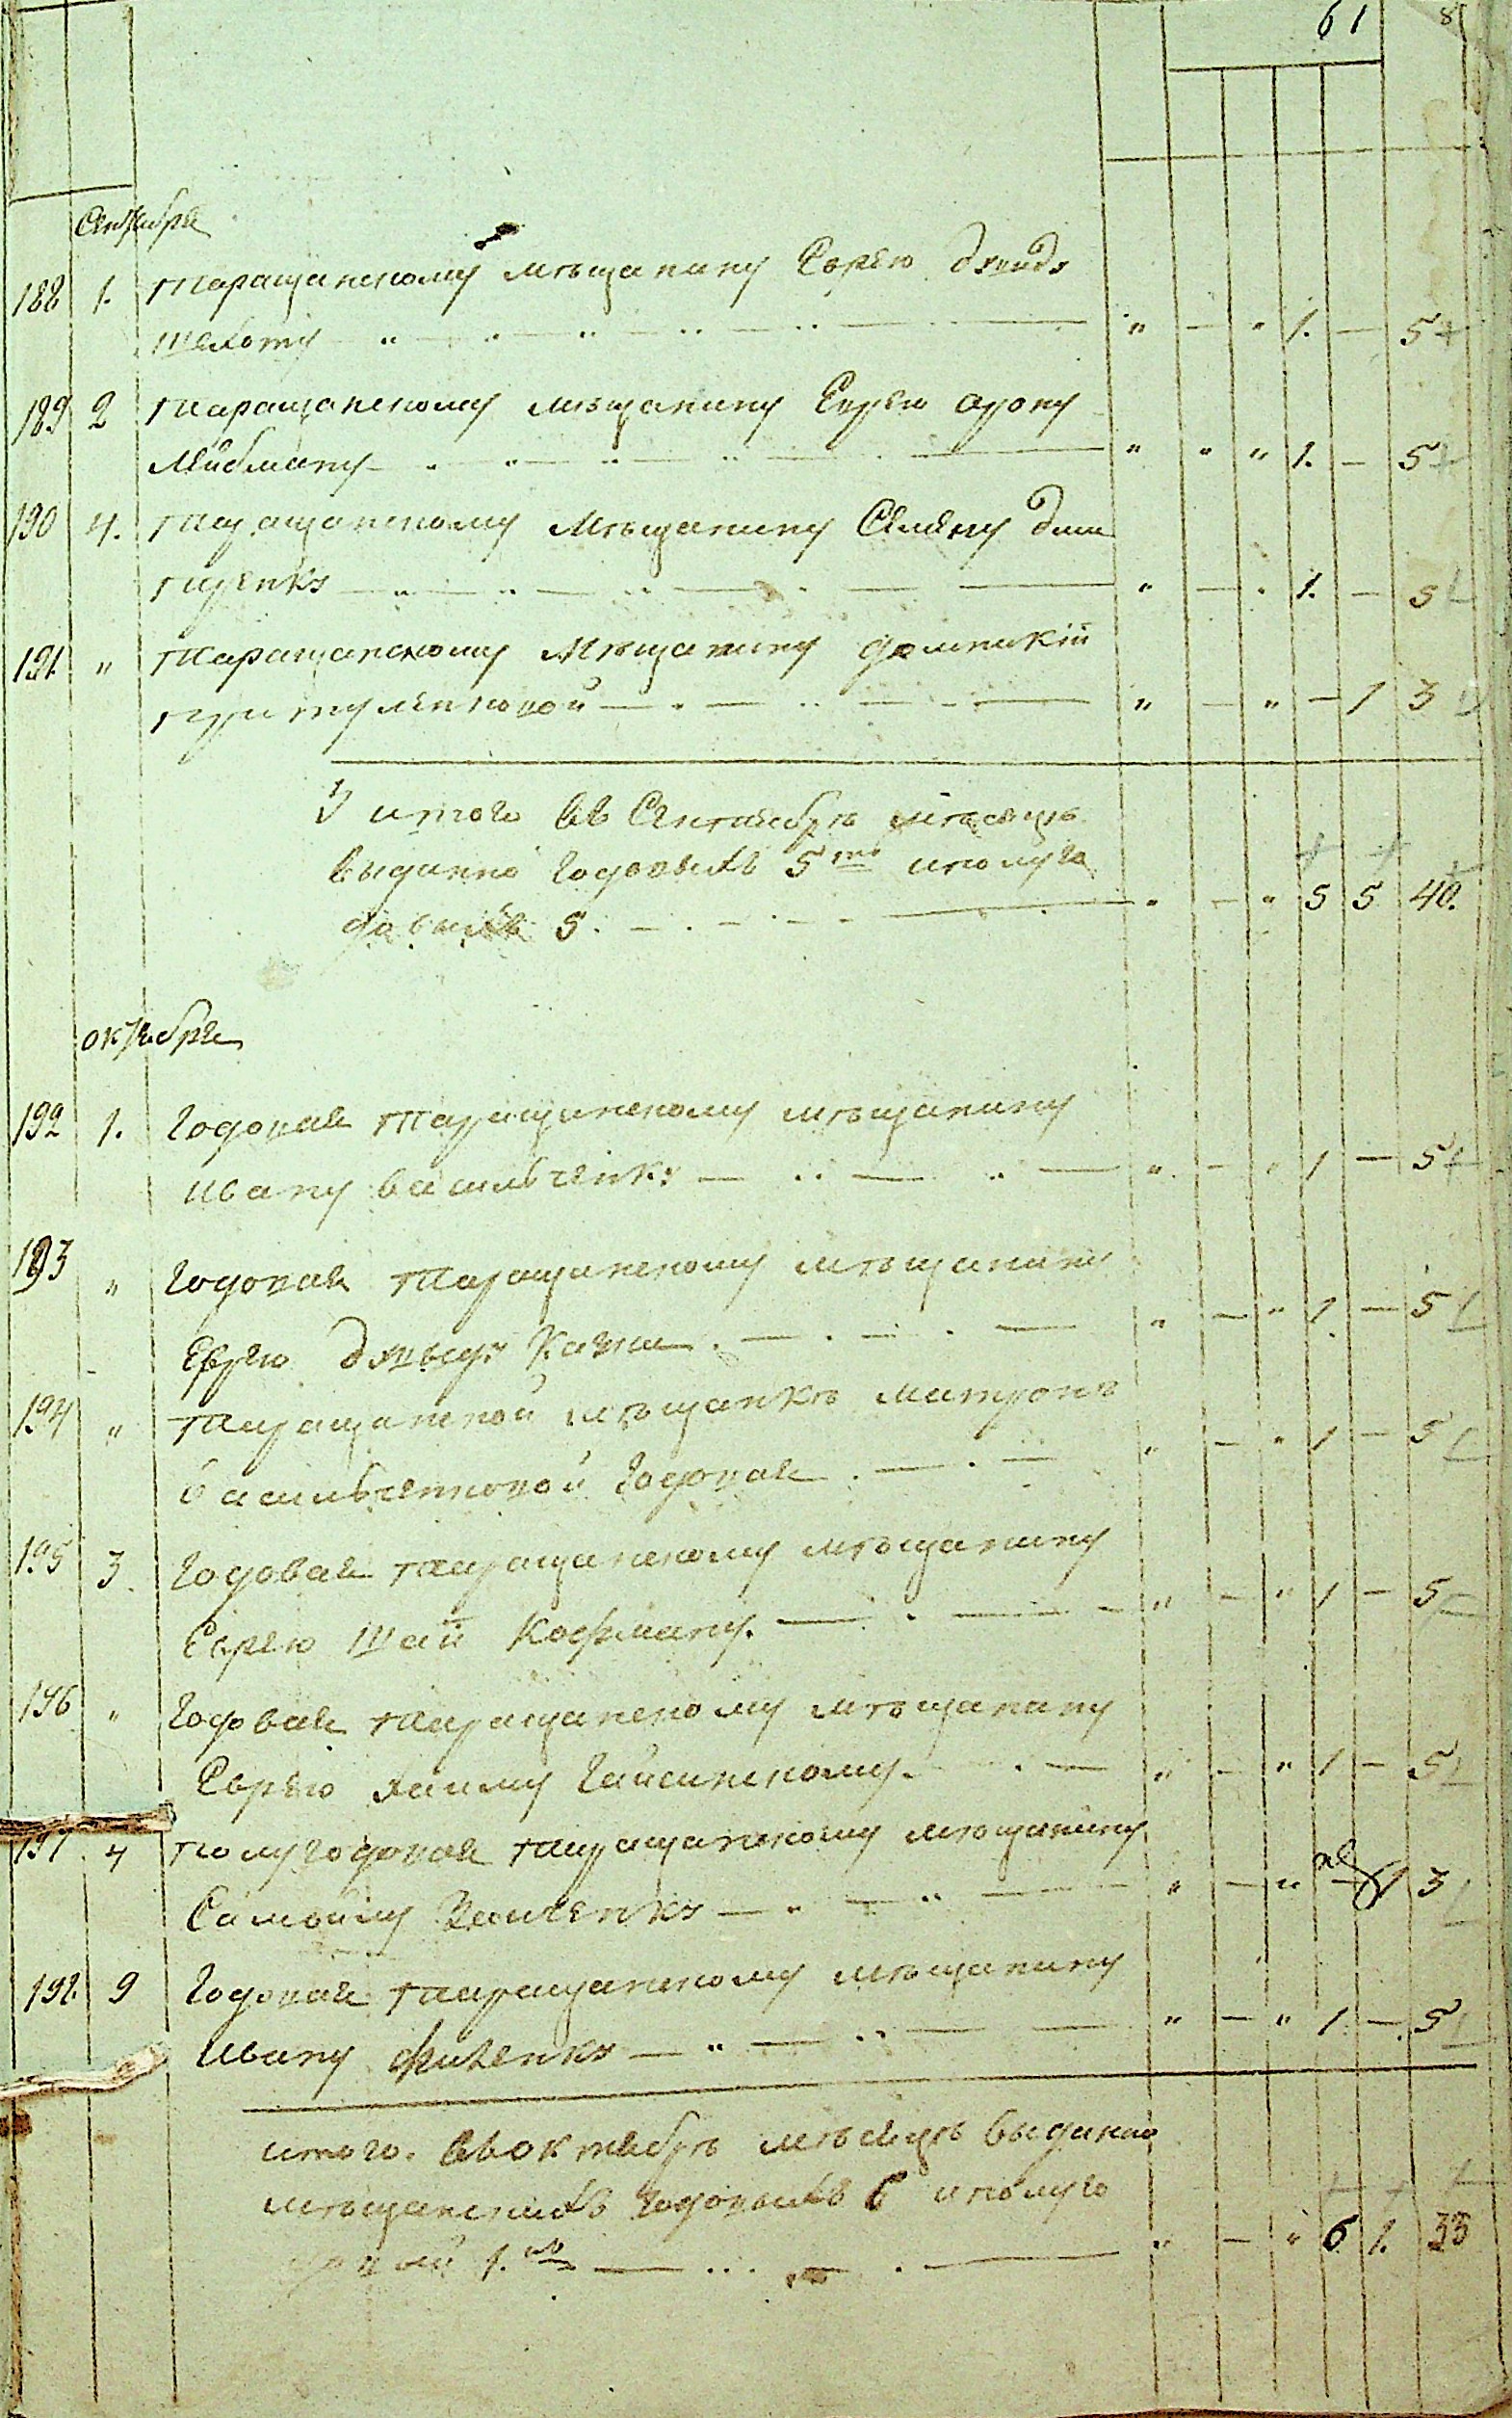 61 8
Сентября
188 1. Таращанскому мѣщанину Еврею
Шехету " — " 1. — 5
189 2 Таращанскому мѣщанину Еврею Арону
Лейбману " " " 1. — 5
190 4. Таращанскому Мѣщанину Семену
" — " 1. — 5
191. " Таращанскому Мѣщанину
" — " — 1 3
итого въ Сентябрѣ мѣсяцѣ
выдано годовыхъ 5ть иполуго
довыхъ 5. " — " 5 5 40.
октября
192 1. Годовая Таращанскому мѣщанину
Ивану Васильченку " — " 1 — 5
193 " Годовая Таращанскому мѣщанину
Еврею " — " 1. — 5
194 " Таращанской мѣщанкѣ Матронѣ
Васильченковой Годовая " — " 1 — 5
195 3. Годовая Таращанскому мѣщанину
Еврею Шаи Кофману. " — " 1 — 5
196 " Годовая Таращанскому мѣщанину
Еврею Хаиму Гайсинскому " — " 1 — 5
197 4 Полугодовая Таращанскому мѣщанину
Самойлу " — " — 1 3
198. 9 Годовая Таращанскому мѣщанину
Ивану " — " 1 — 5
итого. Въ октябрѣ мѣсяцѣ выдано
мѣщанскихъ Годовыхъ 6 иполуго
1. " — " 6 1. 33